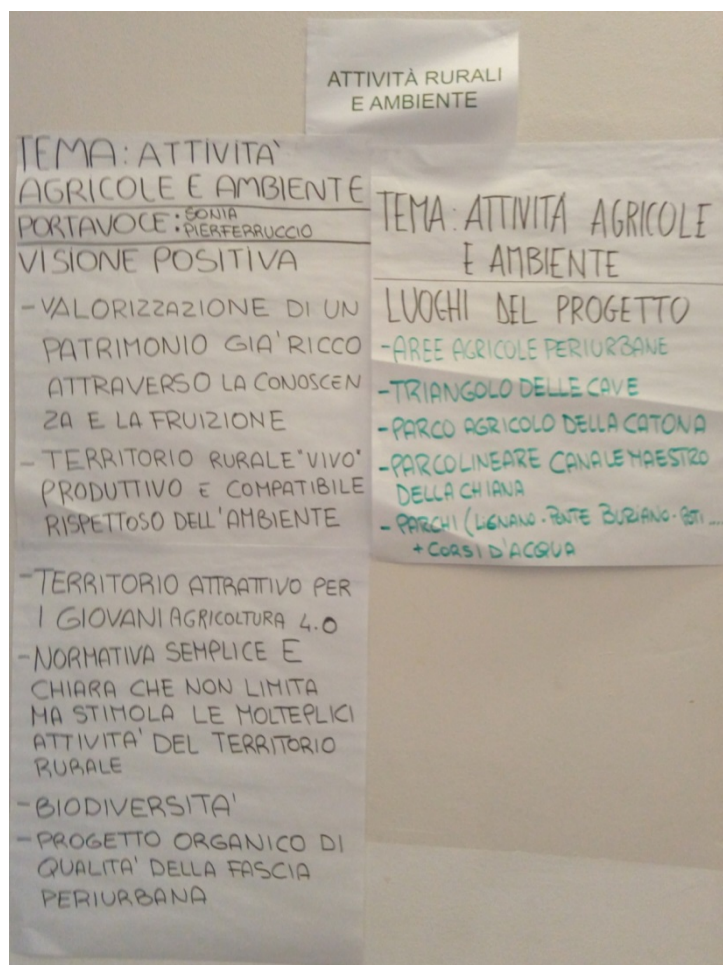 ATTIVITÀ RURALI
E AMBIENTE
TEMA: ATTIVITA'
AGRICOLE E AMBIENTE
PORTAVOCE: SONIA
PIERFERRUCCIO
VISIONE POSITIVA
- VALORIZZAZIONE DI UN
PATRIMONIO GIA' RICCO
ATTRAVERSO LA CONOSCEN
ZA E LA FRUIZIONE
- TERRITORIO RURALE "VIVO"
PRODUTTIVO E COMPATIBILE
RISPETTOSO DELL'AMBIENTE
- TERRITORIO ATTRATTIVO PER
I GIOVANI AGRICOLTURA 4.0
- NORMATIVA SEMPLICE E
CHIARA CHE NON LIMITA
MA STIMOLA LE MOLTEPLICI
ATTIVITA' DEL TERRITORIO
RURALE
- BIODIVERSITA'
- PROGETTO ORGANICO DI
QUALITA' DELLA FASCIA
PERIURBANA
TEMA: ATTIVITÁ AGRICOLE
E AMBIENTE
LUOGHI DEL PROGETTO
- AREE AGRICOLE PERIURBANE
- TRIANGOLO DELLE CAVE
- PARCO AGRICOLO DELLA CATONA
- PARCO LINEARE CANALE MAESTRO
DELLA CHIANA
- PARCHI (LIGNANO - PONTE BURIANO - POTI ....
+ CORSI D'ACQUA